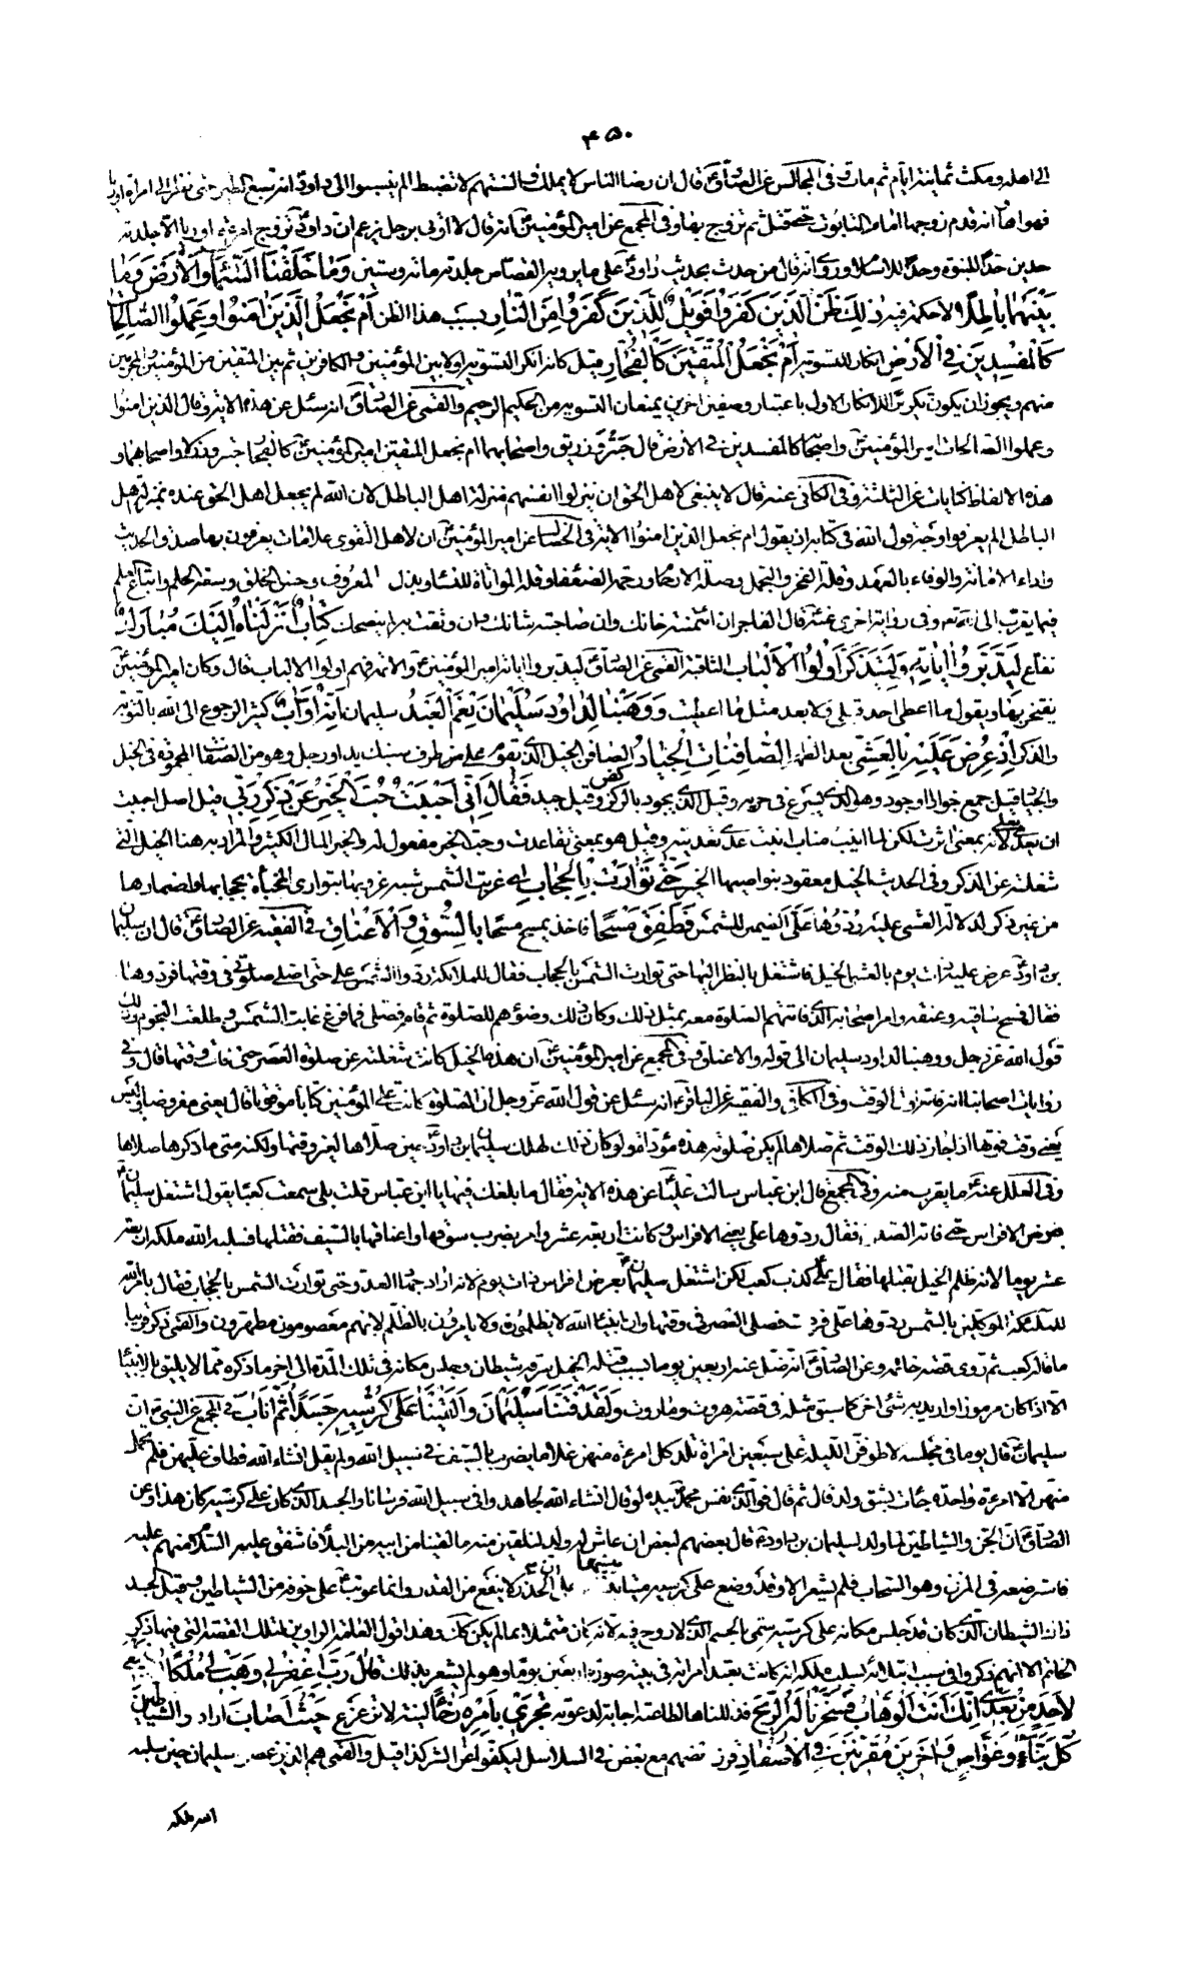 ۴۵۰
الى اهله ومكث ثمانية ايام ثم مات وفى المجالس عن الصادق ع قال ان رضا الناس لا يملك والسنتهم لا تضبط الم ينسبوا الى داود ع انه تبع الطير حتى نظر الى امرأة اوريا
فهواها وانه قدم زوجها امام التابوت حتى قتل ثم تزوج بها وفى المجمع عن امير المؤمنين ع انه قال لا اوتى برجل يزعم ان داود ع تزوج امرأة اوريا الا جلدته
حدين حدا للنبوة وحدا للاسلام وروى انه قال من حدث بحديث داود ع على ما يرويه القصاص جلدته مأة وستين وَمَا خَلَقْنَا السَّمَاءَ وَالْأَرْضَ وَمَا
بَيْنَهُمَا بَاطِلًا لا حكمة فيه ذَلِكَ ظَنُّ الَّذِينَ كَفَرُوا فَوَيْلٌ لِلَّذِينَ كَفَرُوا مِنَ النَّارِ بسبب هذا الظن أَمْ نَجْعَلُ الَّذِينَ آمَنُوا وَعَمِلُوا الصَّالِحَاتِ
كَالْمُفْسِدِينَ فِي الْأَرْضِ انكار للتسوية أَمْ نَجْعَلُ الْمُتَّقِينَ كَالْفُجَّارِ قيل كانه انكر التسوية اولا بين المؤمنين والكافرين ثم بين المتقين من المؤمنين والمجرمين
منهم ويجوز ان يكون تكريرا للانكار الاول باعتبار وصفين اخرين يمنعان التسوية من الحكيم الرحيم والقمى عن الصادق ع انه سئل عن هذه الاية فقال الذين امنوا
وعملوا الصالحات امير المؤمنين ع واصحابه كالمفسدين فى الارض قال حبتر وزريق واصحابهما ام نجعل المتقين امير المؤمنين ع كالفجار حبتر وزريق واصحابهما و
هذه الالفاظ كنايات عن الثلثة وفى الكافى عنه قال لا ينبغى لاهل الحق ان ينزلوا انفسهم منزلة اهل الباطل لان الله لم يجعل اهل الحق عنده بمنزلة اهل
الباطل الم يعرفوا وجه قول الله فى كتابه اذ يقول ام نجعل الذين امنوا الاية وفى الخصال عن امير المؤمنين ع ان لاهل التقوى علامات يعرفون بها صدق الحديث
واداء الامانة والوفاء بالعهد وقلة الفخر والتجمل وصلة الارحام ورحمة الضعفاء وقلة المواتاة للنساء وبذل المعروف وحسن الخلق وسعة الحلم واتباع العلم
فيما يقرب الى الله وفى رواية اخرى عنه ع قال الفاجر ان ائتمنته خانك وان صاحبته شانك وان وثقت به لم ينصحك كِتَابٌ أَنْزَلْنَاهُ إِلَيْكَ مُبَارَكٌ
نفاع لِيَدَّبَّرُوا آيَاتِهِ وَلِيَتَذَكَّرَ أُولُوا الْأَلْبَابِ الثاقبة القمى عن الصادق ع ليدبروا اياته امير المؤمنين ع والائمة فهم اولوا الالباب قال وكان امير المؤمنين ع
يفتخر بها ويقول ما اعطى احد قبلى ولا بعدى مثل ما اعطيت وَوَهَبْنَا لِدَاوُدَ سُلَيْمَانَ نِعْمَ الْعَبْدُ سليمان إِنَّهُ أَوَّابٌ كثير الرجوع الى الله بالتوبة
والذكر إِذْ عُرِضَ عَلَيْهِ بِالْعَشِيِّ بعد الظهر الصَّافِنَاتُ الْجِيَادُ الصافن الخيل الذى يقوم على طرف سنبك يد او رجل وهو من الصفات المحمودة فى الخيل
والجياد قيل جمع جواد او جود وهو الذى يسرع فى جريه وقيل الذى يجود بالركض وقيل جيد فَقَالَ إِنِّي أَحْبَبْتُ حُبَّ الْخَيْرِ عَنْ ذِكْرِ رَبِّي قيل اصل احببت
ان يعدى بعلى لانه بمعنى اثرت لكن لما انيب مناب انبت عدى تعديته وقيل هو بمعنى تقاعدت وحب الخير مفعول له والخير المال الكثير والمراد به هنا الخيل التى
شغلته عن الذكر وفى الحديث الخيل معقود بنواصيها الخير حَتَّى تَوَارَتْ بِالْحِجَابِ اى غربت الشمس شبه غروبها بتوارى المخباة بحجابها واضمارها
من غير ذكر لدلالة العشى عليه رُدُّوهَا عَلَيَّ الضمير للشمس فَطَفِقَ مَسْحًا فاخذ يمسح مسحا بِالسُّوقِ وَالْأَعْنَاقِ فى الفقيه عن الصادق ع قال ان سليمان
بن داود ع عرض عليه ذات يوم بالعشى الخيل فاشتغل بالنظر اليها حتى توارت الشمس بالحجاب فقال للملائكة ردوا الشمس على حتى اصلى صلوتى فى وقتها فردوها
فقام فمسح ساقيه وعنقه وامر اصحابه الذى فاتتهم الصلوة معه بمثل ذلك وكان ذلك وضوءهم للصلوة ثم قام فصلى فلما فرغ غابت الشمس وطلعت النجوم وذلك
قول الله عز وجل ووهبنا لداود سليمان الى قوله والاعناق وفى المجمع عن امير المؤمنين ع ان هذه الخيل كانت شغلته عن صلوة العصر حتى فات وقتها قال وفى
روايات اصحابنا انه فاته اول الوقت وفى الكافى والفقيه عن الباقر ع انه سئل عن قول الله عز وجل ان الصلوة كانت على المؤمنين كتابا موقوتا قال يعنى مفروضا وليس
يعنى وقت فوتها اذا جاز ذلك الوقت ثم صلاها لم يكن صلوته هذه مؤداة ولو كان كذلك لهلك سليمان بن داود ع حين صلاها لغير وقتها ولكنه متى ما ذكرها صلاها
وفى العلل عنه ع ما يقرب منه وفى المجمع قال ابن عباس سالت عليا ع عن هذه الاية فقال ما بلغك فيها يا ابن عباس قلت بلى سمعت كعبا يقول اشتغل سليمان
بعرض الافراس حتى فاتته الصلوة فقال ردوها على يعنى الافراس وكانت اربعة عشر وامر بضرب سوقها واعناقها بالسيف فقتلها فسلبه الله ملكه اربعة
عشر يوما لانه ظلم الخيل بقتلها فقال على ع كذب كعب لكن اشتغل سليمان بعرض افراس ذات يوم لانه اراد جهاد العدو حتى توارت الشمس بالحجاب فقال بامر الله
للملئكة الموكلين بالشمس ردوها على فردت فصلى العصر فى وقتها وان انبياء الله لا يظلمون ولا يامرون بالظلم لانهم معصومون مطهرون والقمى ذكر قريبا
ما قاله كعب ثم روى قصة خاتمه وعن الصادق ع انه ضل عنه اربعين يوما بسبب قتله الخيل سرقه شيطان وجلس مكانه فى تلك المدة الى اخر ما ذكره مما لا يليق بالانبياء
الا اذا كان مرموزا واريد به شئ اخر كما سبق مثله فى قصة هروت وماروت وَلَقَدْ فَتَنَّا سُلَيْمَانَ وَأَلْقَيْنَا عَلَى كُرْسِيِّهِ جَسَدًا ثُمَّ أَنَابَ فى المجمع عن النبى ص ان
سليمان ع قال يوما فى مجلسه لاطوفن الليلة على سبعين امرأة تلد كل امرءة منهن غلاما يضرب بالسيف فى سبيل الله ولم يقل انشاء الله فطاف عليهن فلم تحمل
منهن الا امرءة واحدة جاءت بشق ولد قال ثم قال فوالذى نفس محمد ص بيده لو قال انشاء الله لجاهدوا فى سبيل الله فرسانا والجسد الذى كان على كرسيه كان هذا وعن
الصادق ع ان الجن والشياطين لما ولد لسليمان بن داود ع قال بعضهم لبعض ان عاش له ولد لنلقين منه ما لقينا من ابيه من البلاء فاشفق عليه السلام منهم عليه
فاسترضعه فى المزن وهو السحاب فلم يشعر الا وقد وضع على كرسيه ميتا تنبيها على ان الحذر لا ينفع من القدر وانما عوتب ع على خوفه من الشياطين وقيل الجسد
ذاك الشيطان الذى كان قد جلس مكانه على كرسيه سمى بالجسم الذى لا روح فيه لانه كان متمثلا بما لم يكن كذلك وهذا قول العامة الراوين لتلك القصة التى فيها ذكر
الخاتم الا انهم ذكروا فى سبب ابتلائه بسلبه ملكه انه كانت تعبد امرأته فى بيته صورة اربعين يوما وهو لم يشعر بذلك قَالَ رَبِّ اغْفِرْ لِي وَهَبْ لِي مُلْكًا لَا يَنْبَغِي
لِأَحَدٍ مِنْ بَعْدِي إِنَّكَ أَنْتَ الْوَهَّابُ فَسَخَّرْنَا لَهُ الرِّيحَ فذللناها لطاعته اجابة لدعوته تَجْرِي بِأَمْرِهِ رُخَاءً لينة لا تزعزع حَيْثُ أَصَابَ اراد وَالشَّيَاطِينَ
كُلَّ بَنَّاءٍ وَغَوَّاصٍ وَآخَرِينَ مُقَرَّنِينَ فِي الْأَصْفَادِ قرن بعضهم مع بعض فى السلاسل ليكفوا عن الشر كذا قيل والقمى هم الذين عصوا سليمان حين سلبه
الله ملكه